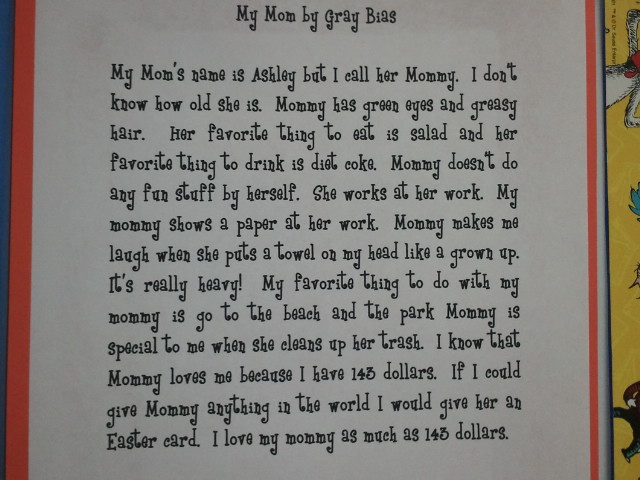 My Mom by Gray Bias
My Mom's name is Ashley but I call her Mommy. I don't
know how old she is. Mommy has green eyes and greasy
hair. Her favorite thing to eat is salad and her
favorite thing to drink is diet coke. Mommy doesn't do
any fun stuff by herself. She works at her work. My
mommy shows a paper at her work. Mommy makes me
laugh when she puts a towel on my head like a grown up.
It's really heavy! My favorite thing to do with my
mommy is go to the beach and the park Mommy is
special to me when she cleans up her trash. I know that
Mommy loves me because I have 143 dollars. If I could
give Mommy anything in the world I would give her an
Easter card. I love my mommy as much as 143 dollars.